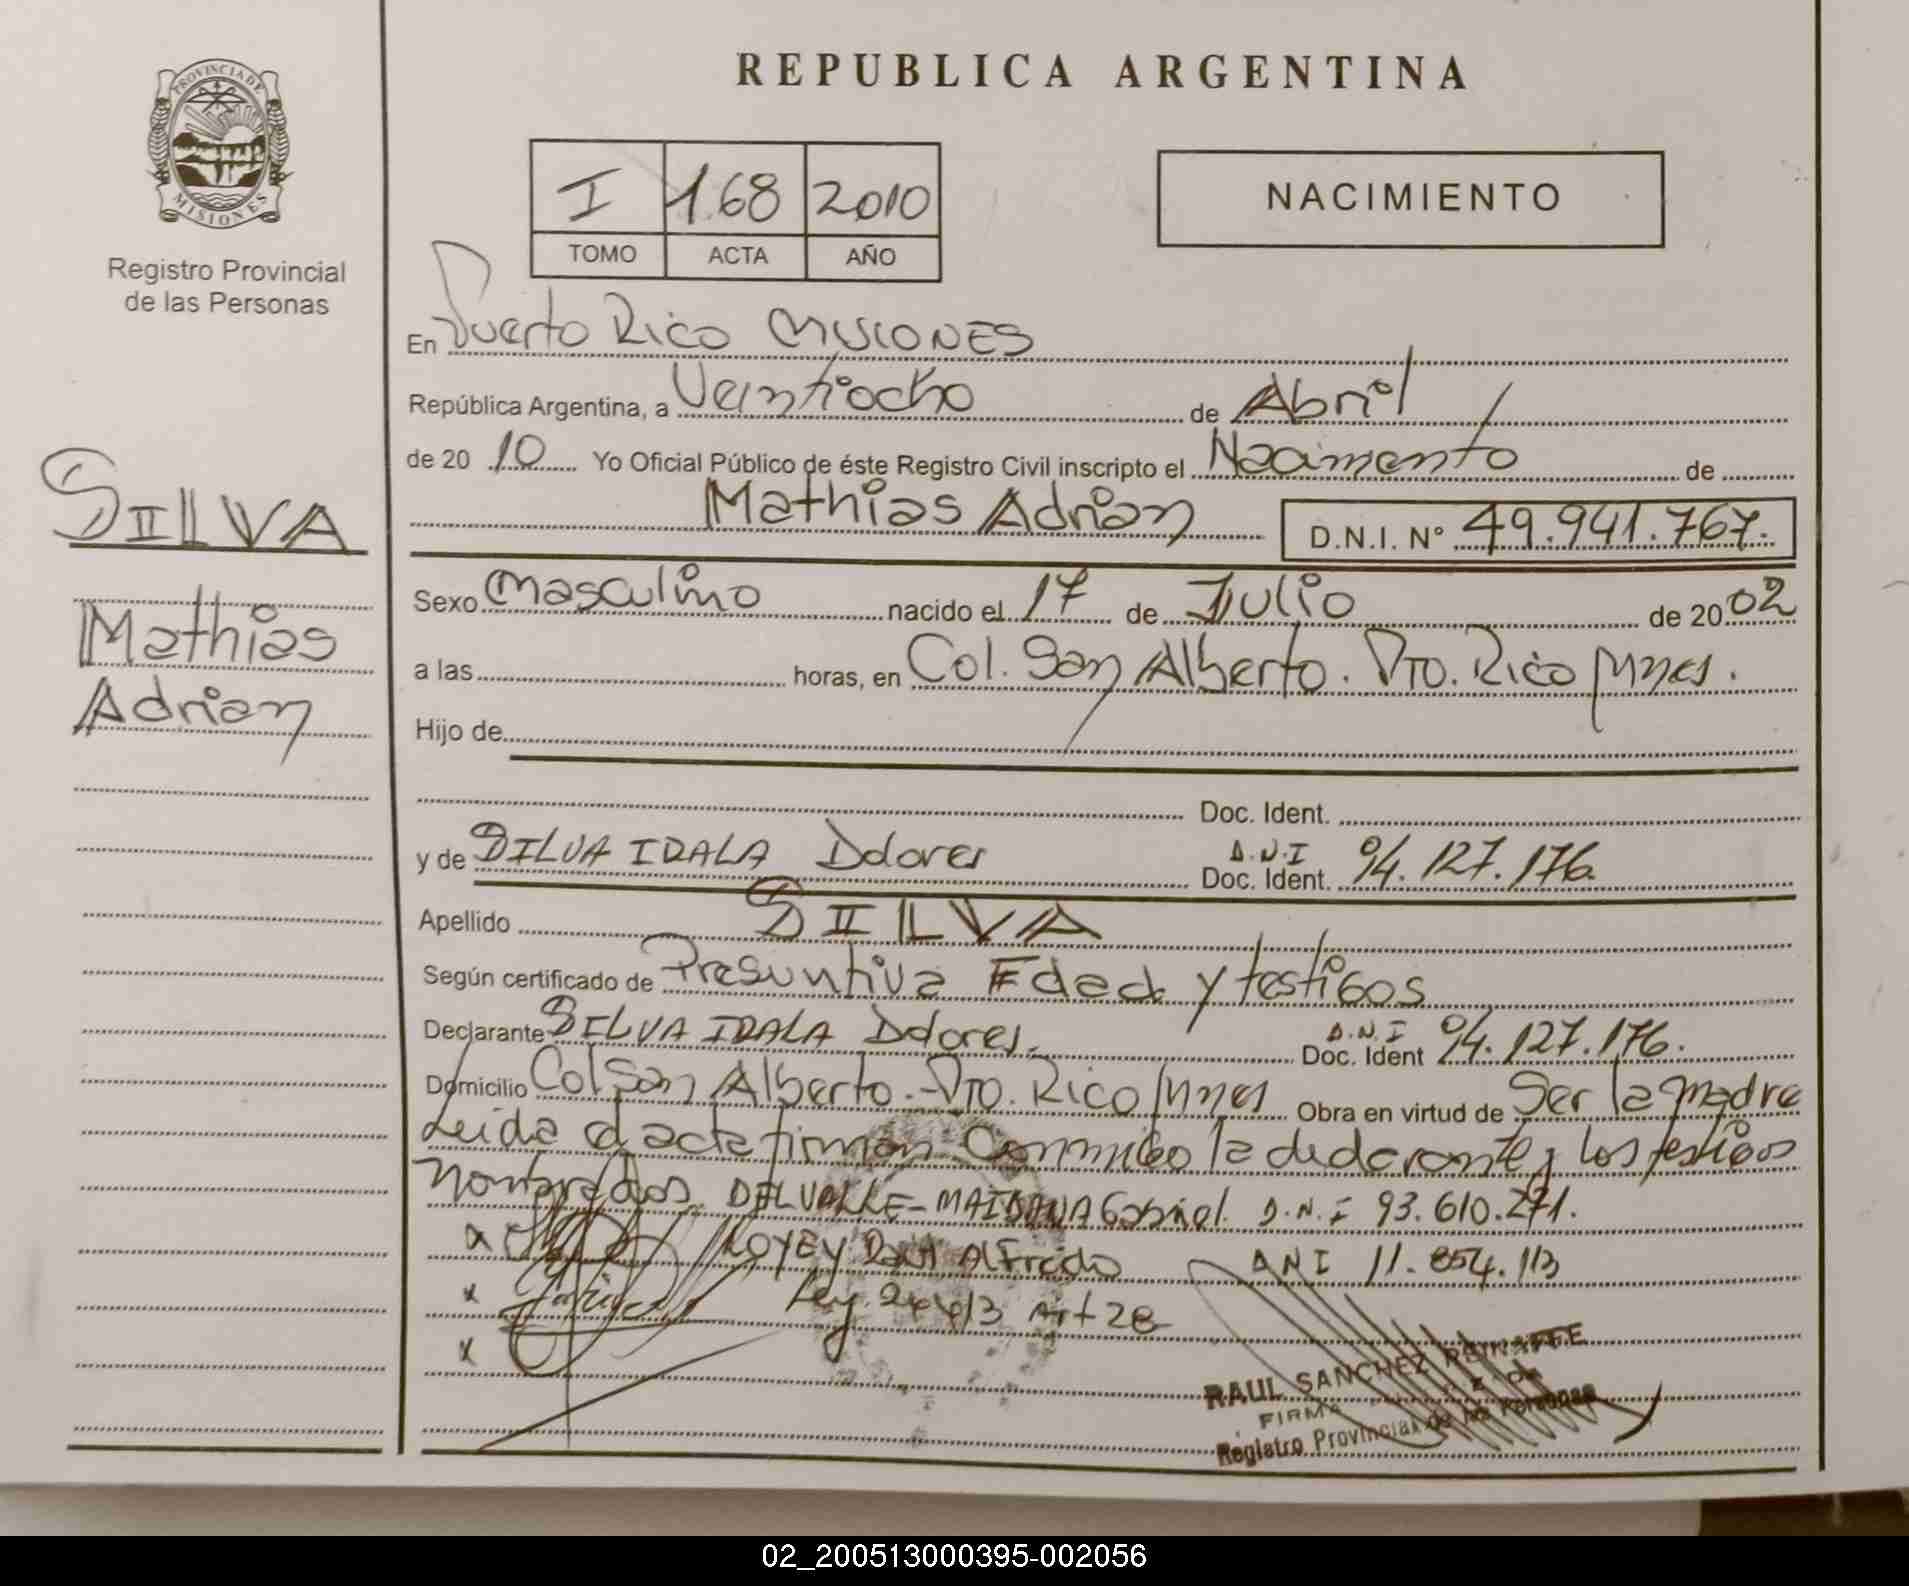 PROVINCIA DE
MISIONES
Registro Provincial
de las Personas
SILVA
Mathias
Adrian
REPUBLICA ARGENTINA
I 168 2010
TOMO ACTA AÑO
NACIMIENTO
En Puerto Rico MISIONES
República Argentina, a Veintiocho de Abril
de 20 10 Yo Oficial Público de éste Registro Civil inscripto el Nacimiento de
Mathias Adrian D.N.I. Nº 49.941.767.
Sexo Masculino nacido el 17 de Julio de 20 02
a las horas, en Col. San Alberto. Pto. Rico Mnes.
Hijo de
Doc. Ident.
y de SILVA IDALA Dolores D.N.I Doc. Ident. 94.127.176.
Apellido SILVA
Según certificado de Presuntiva Edad y testigos
Declarante SILVA IDALA Dolores. D.N.I Doc. Ident 94.127.176.
Domicilio Col San Alberto. Pto. Rico Mnes Obra en virtud de Ser la madre
Leida el acta firman Conmigo la declarante y los testigos
Nombrados DELVALLE-MAIDANA Gabriel. D.N.I 93.610.271.
x Raul Alfredo DNI 11.854.113
x Ley. 26413 Art 28
x
RAUL SANCHEZ REINAFFE
FIRMA
Registro Provincial de las Personas
02_200513000395-002056